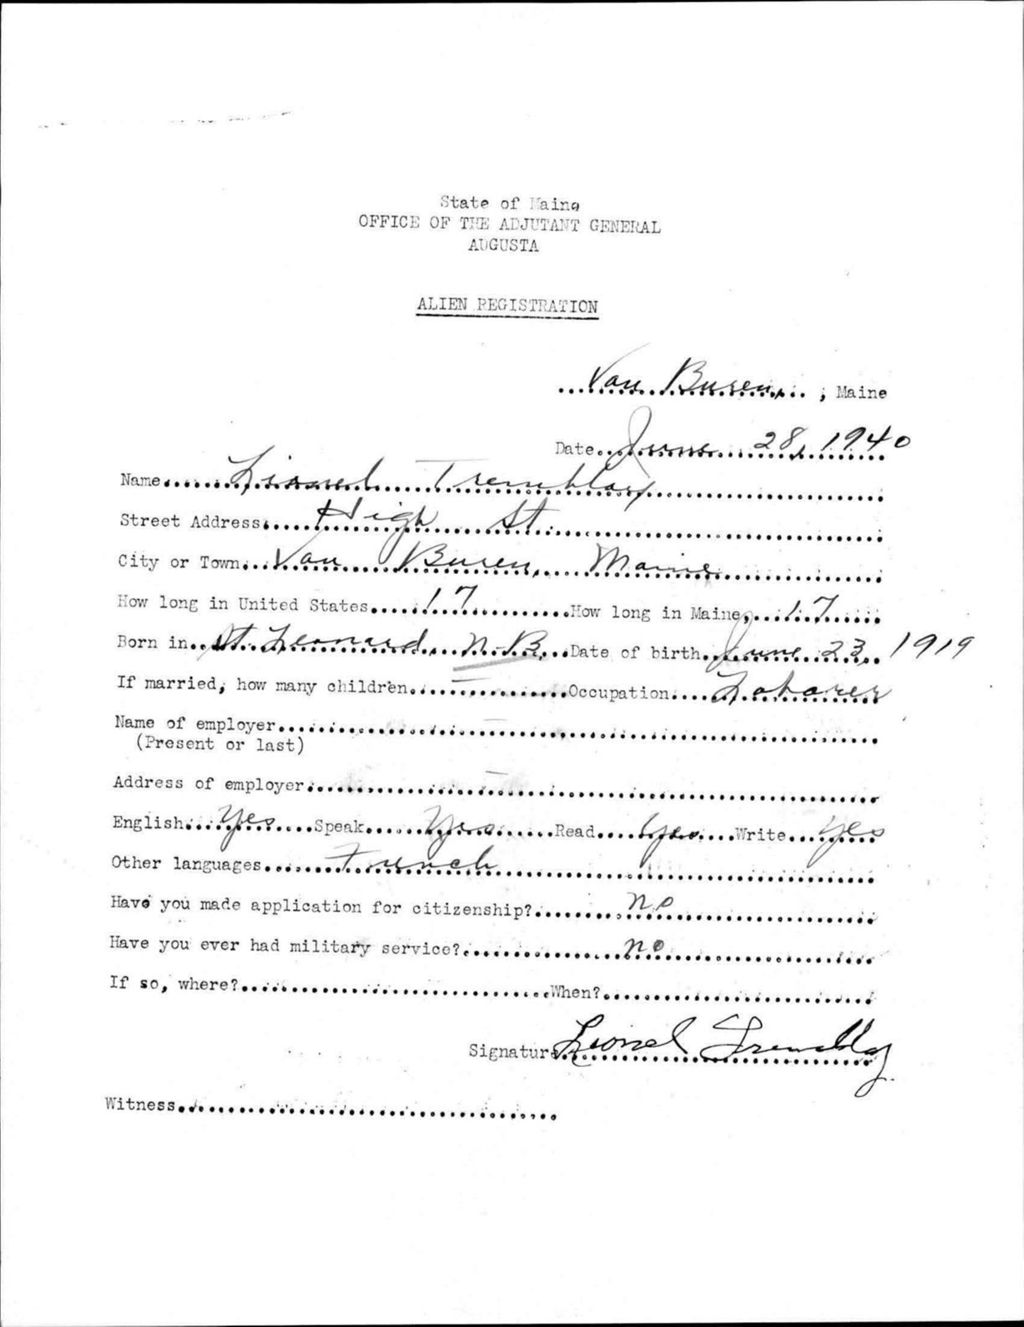 State of Maine
OFFICE OF THE ADJUTANT GENERAL
AUGUSTA
ALIEN REGISTRATION
Van Buren, ; Maine
Date June 28, 1940
Name Lionel Tremblay
Street Address High St.
City or Town Van Buren, Maine
How long in United States 17 How long in Maine 17
Born in St. Leonard, N.B. Date of birth June 23, 1919
If married, how many children — Occupation Laborer
Name of employer —
(Present or last)
Address of employer —
English Yes Speak Yes Read Yes Write Yes
Other languages French
Have you made application for citizenship? no
Have you ever had military service? no
If so, where? When?
Signature Lionel Tremblay
Witness